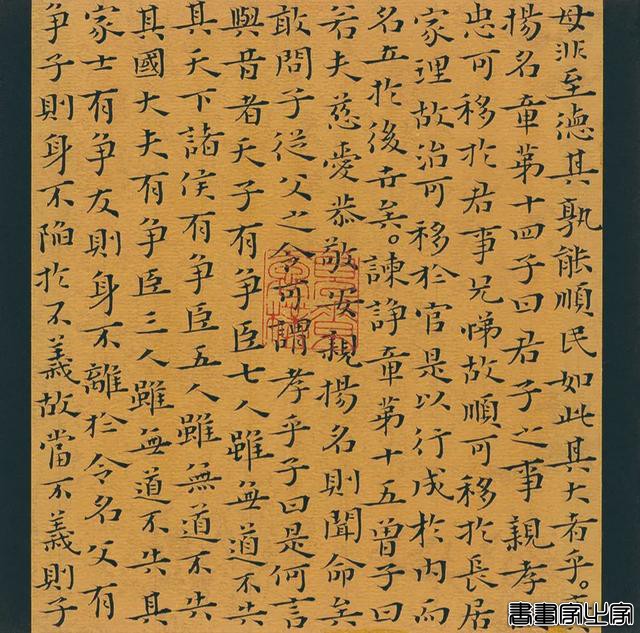 母非至德其孰能順民如此其大者乎。
揚名章第十四子曰君子之事親孝
忠可移於君事兄悌故順可移於長居
家理故治可移於官是以行成於內而
名立於後世矣。諫諍章第十五曾子曰
若夫慈愛恭敬安親揚名則聞命矣
敢問子從父之令可謂孝乎子曰是何言
與昔者天子有爭臣七人雖無道不失
其天下諸侯有爭臣五人雖無道不失
其國大夫有爭臣三人雖無道不失其
家士有爭友則身不離於令名父有
爭子則身不陷於不義故當不義則子